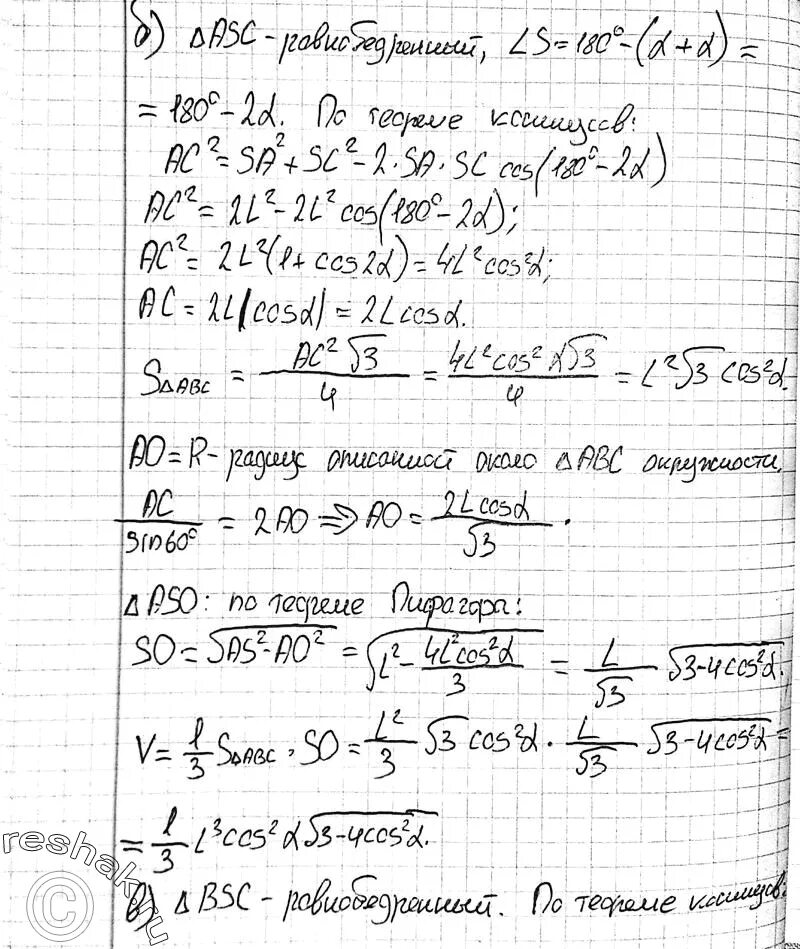 б) ΔASC - равнобедренный, ∠S = 180° - (α + α) =
= 180° - 2α. По теореме косинусов:
AC² = SA² + SC² - 2·SA·SC cos(180° - 2α)
AC² = 2L² - 2L² cos(180° - 2α);
AC² = 2L²(1 + cos2α) = 4L²cos²α;
AC = 2L|cosα| = 2L cosα.
S ΔABC = AC²√3/4 = 4L²cos²α√3/4 = L²√3 cos²α.
AO = R - радиус описанной около ΔABC окружности.
AC/sin60° = 2AO ⇒ AO = 2L cosα/√3.
ΔASO: по теореме Пифагора:
SO = √(AS² - AO²) = √(L² - 4L²cos²α/3) = L/√3 √(3 - 4cos²α).
V = 1/3 S ΔABC · SO = L²/3 √3 cos²α · L/√3 √(3 - 4cos²α) =
= 1/3 L³cos²α√(3 - 4cos²α).
в) ΔBSC - равнобедренный. По теореме косинусов
reshak.ru
©